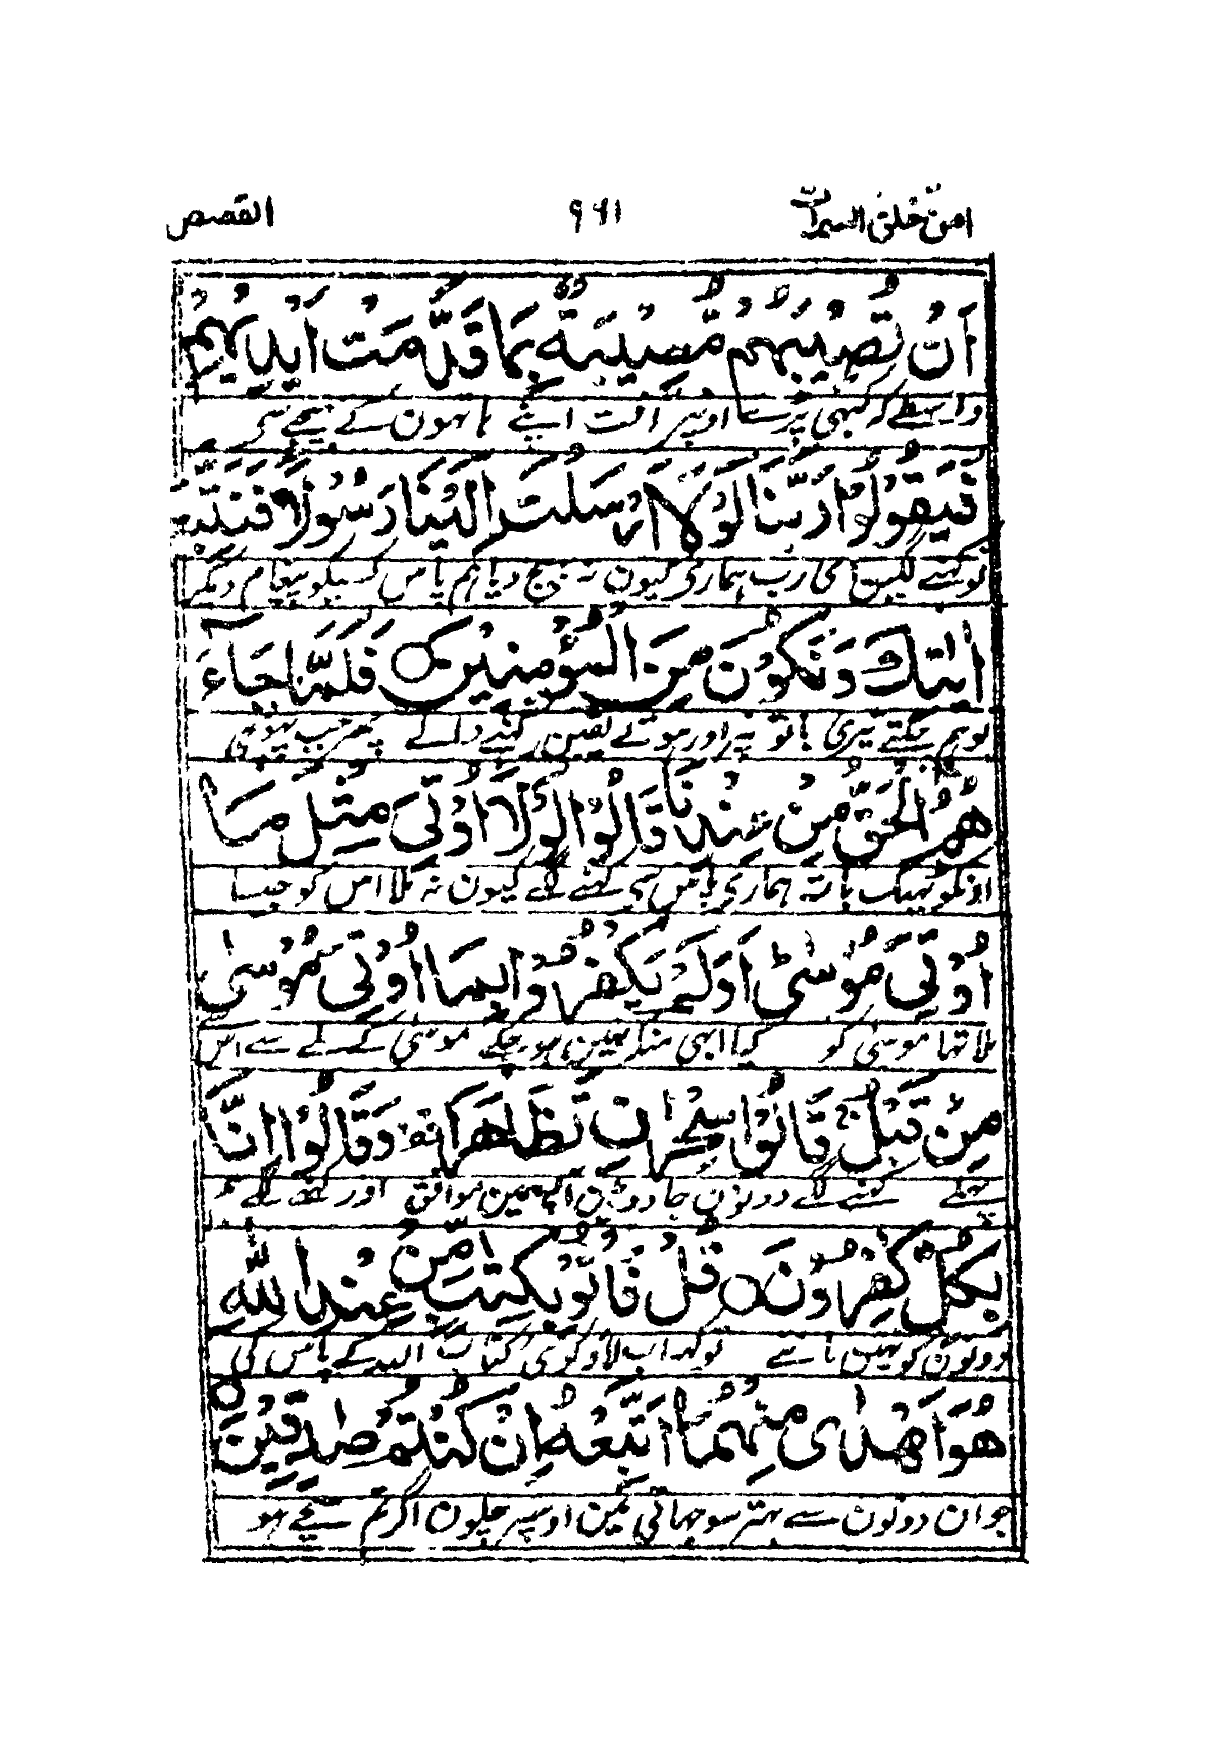 امن خلق السمٰوٰت ۹۶۱ القصص
اَنْ تُصِيْبَهُمْ مُّصِيْبَةٌۢ بِمَا قَدَّمَتْ اَيْدِيْهِمْ
واسطے کہ کبھی پڑے اوپر آفت اپنے ہاتھون کے بھیجے سے
فَيَقُوْلُوْا رَبَّنَا لَوْلَا اَرْسَلْتَ اِلَيْنَا رَسُوْلًا فَنَتَّبِعَ
تو کہنے لگین ای رب ہماری کیون نہ بھیج دیا ہم پاس کسیکو پیغام دیکر
اٰيٰتِكَ وَنَكُوْنَ مِنَ الْمُؤْمِنِيْنَ ○ فَلَمَّا جَآءَ
تو ہم چلتے تیری باتو نپر اور ہوتے یقین رکھنے والے پھر جب پہونچی
هُمُ الْحَقُّ مِنْ عِنْدِنَا قَالُوْا لَوْلَآ اُوْتِيَ مِثْلَ مَآ
اونکو ٹھیک بات ہماری پاس سی کہنے لگے کیون نہ ملا اس کو جیسا
اُوْتِيَ مُوْسٰى اَوَلَمْ يَكْفُرُوْا بِمَآ اُوْتِيَ مُوْسٰى
ملا تھا موسیٰ کو کیا ابھی منکر نہین ہو چکے موسیٰ کے ملے سے اس
مِنْ قَبْلُ قَالُوْا سِحْرٰنِ تَظَاهَرَا وَقَالُوْٓا اِنَّا
پہلے کہنے لگے دونون جادو ہین آپسمین موافق اور کہنے لگے ہم
بِكُلٍّ كٰفِرُوْنَ ○ قُلْ فَاْتُوْا بِكِتٰبٍ مِّنْ عِنْدِ اللّٰهِ
دونون کو نہین مانتے تو کہہ اب لاؤ کوئی کتاب اللہ کے پاس کی
هُوَ اَهْدٰى مِنْهُمَآ اَتَّبِعْهُ اِنْ كُنْتُمْ صٰدِقِيْنَ ○
جو ان دونون سے بہتر سوجھاتی ہمین اوسپر چلون اگر تم سچے ہو